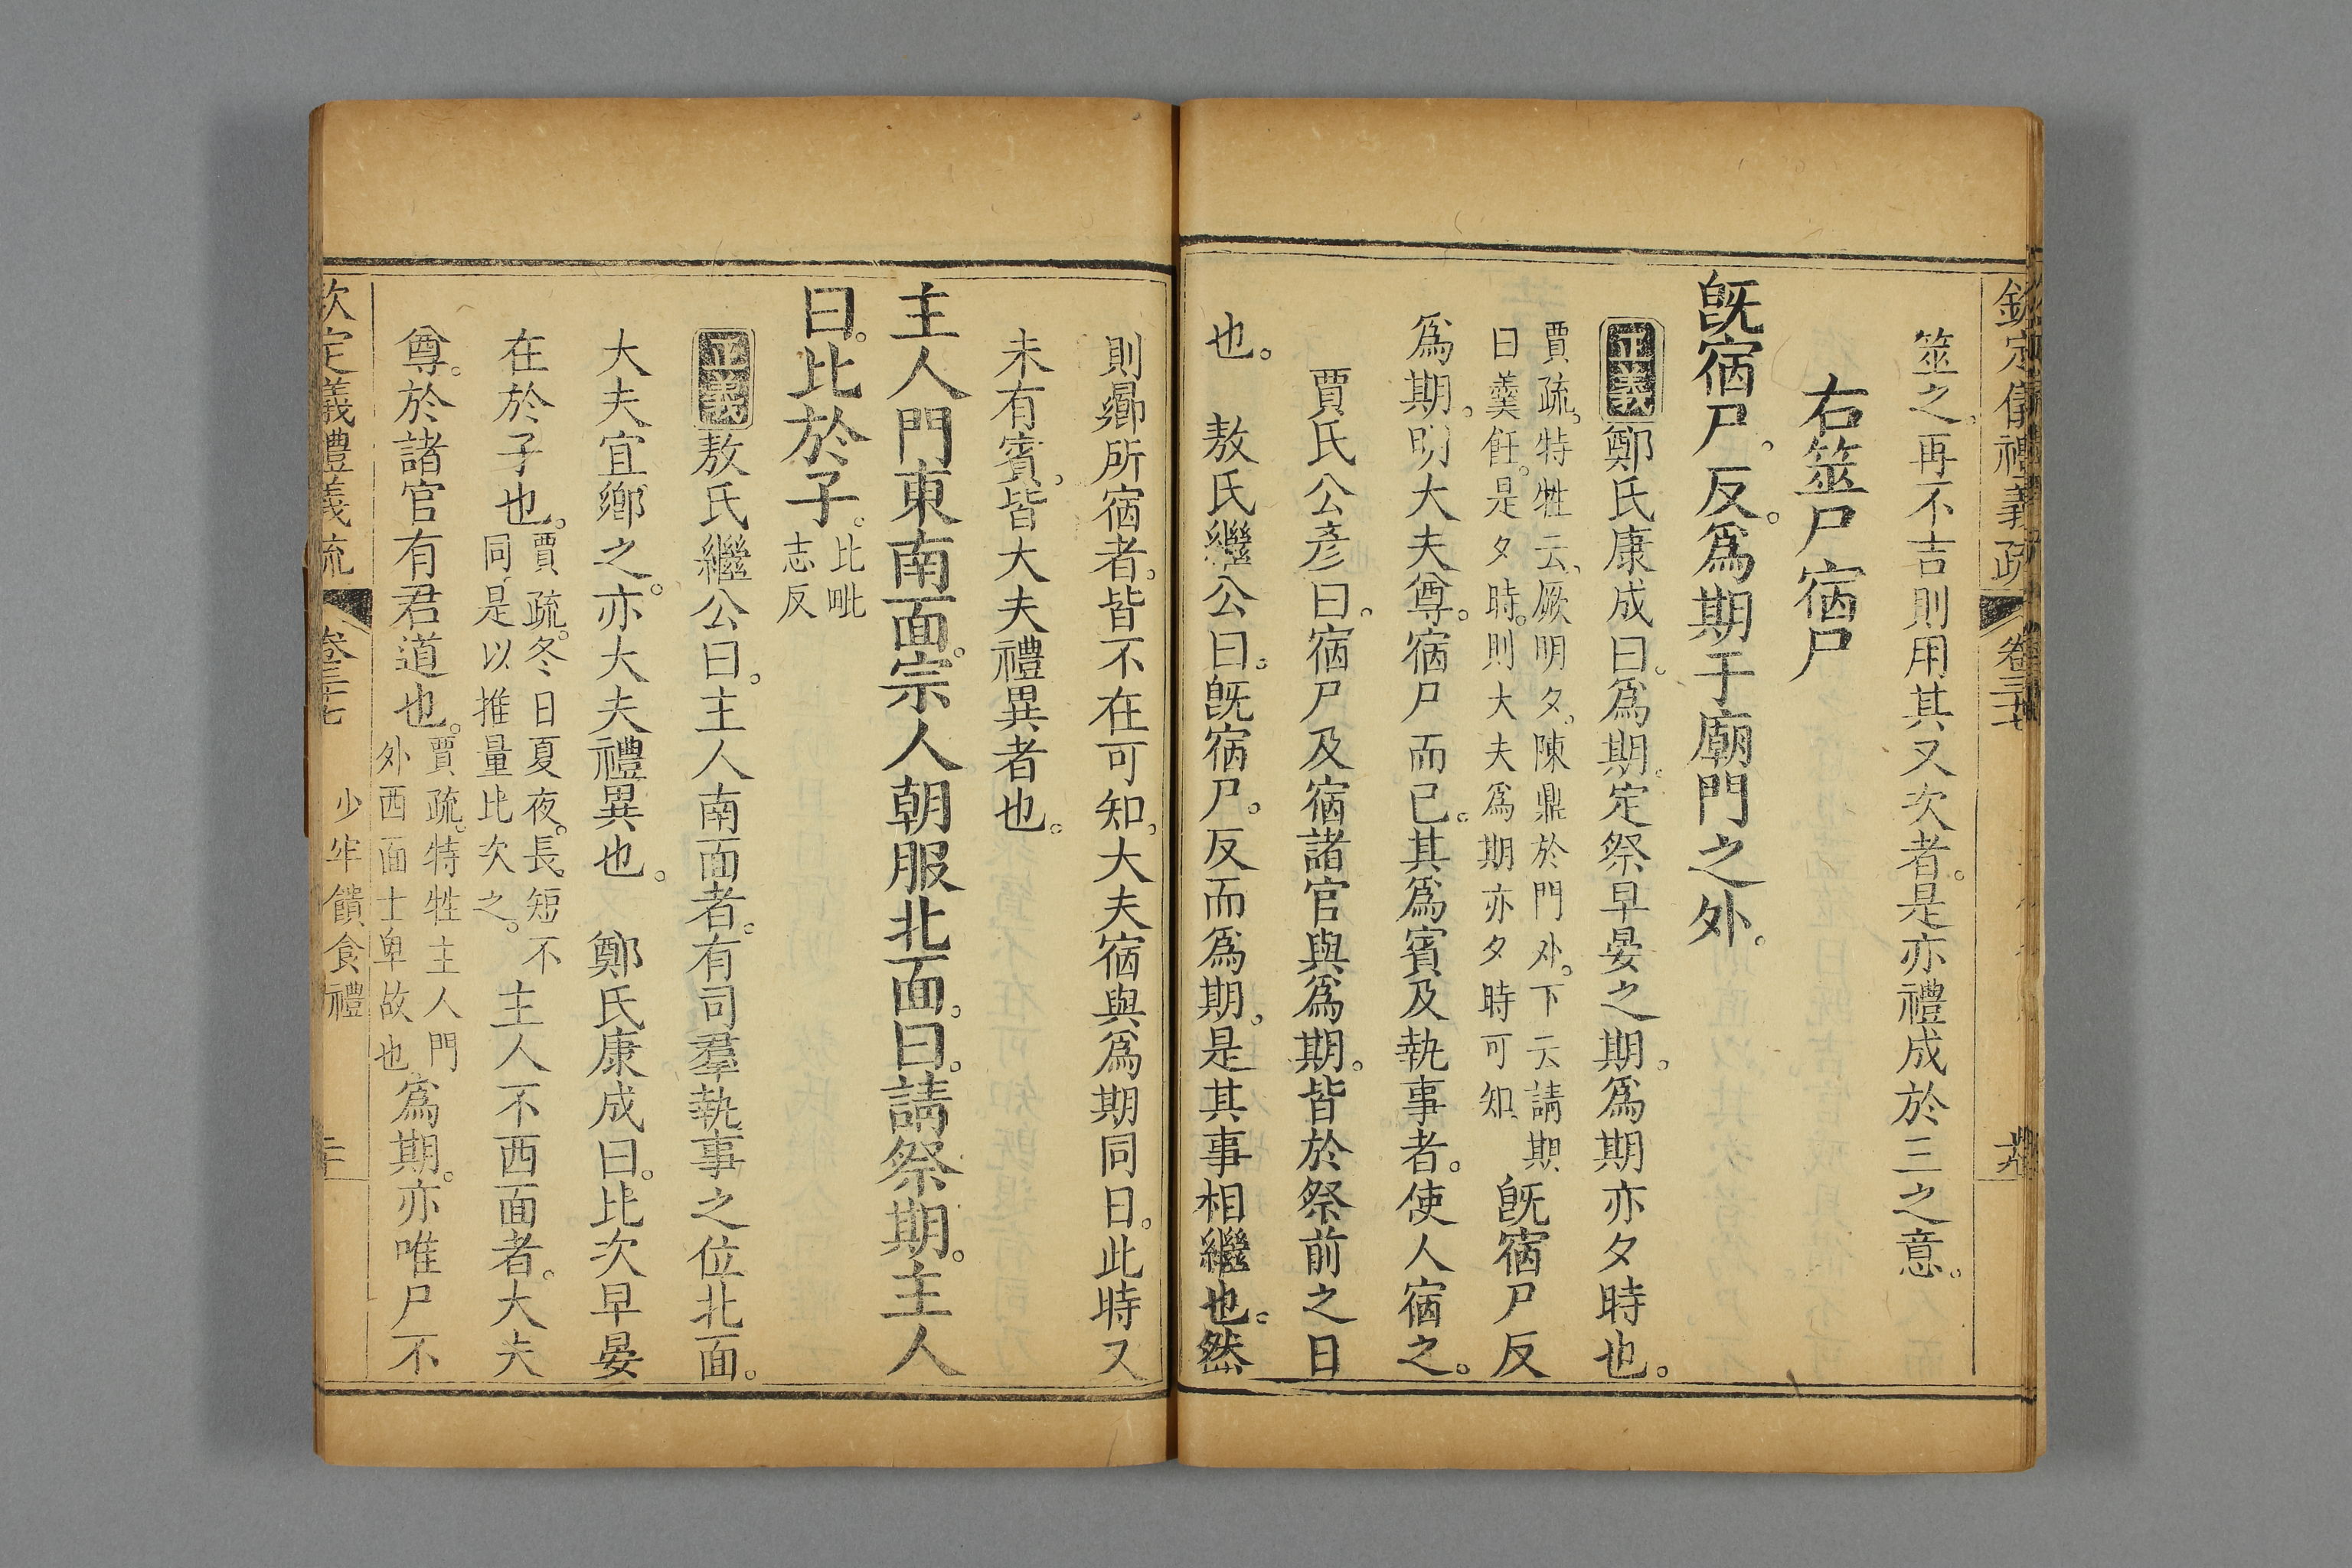 欽定儀禮義疏 卷三十七
筮之再不吉則用其又次者。是亦禮成於三之意。
右筮尸宿尸
旣宿尸。反。爲期于廟門之外。
正義鄭氏康成曰。爲期。定祭早晏之期。爲期亦夕時也。
賈疏。特牲云。厥明夕。陳鼎於門外。下云請期
曰羹飪。是夕時。則大夫爲期亦夕時可知
旣宿尸反
爲期。明大夫尊。宿尸而已。其爲賓及執事者。使人宿之。
賈氏公彥曰。宿尸及宿諸官與爲期。皆於祭前之日
也。 敖氏繼公曰。旣宿尸。反而爲期。是其事相繼也。然
則鄕所宿者。皆不在可知。大夫宿與爲期同日。此時又
未有賓。皆大夫禮異者也。
主人門東南面。宗人朝服北面。曰。請祭期。主人
曰。比於子。
比毗
志反
正義敖氏繼公曰。主人南面者。有司羣執事之位北面。
大夫宜鄉之。亦大夫禮異也。 鄭氏康成曰。比次早晏
在於子也。
賈疏。冬日夏夜。長短不
同。是以推量比次之。
主人不西面者。大夫
尊。於諸官有君道也。
賈疏。特牲主人門
外西面士卑故也
爲期。亦唯尸不
欽定儀禮義疏 卷三十七 少牢饋食禮